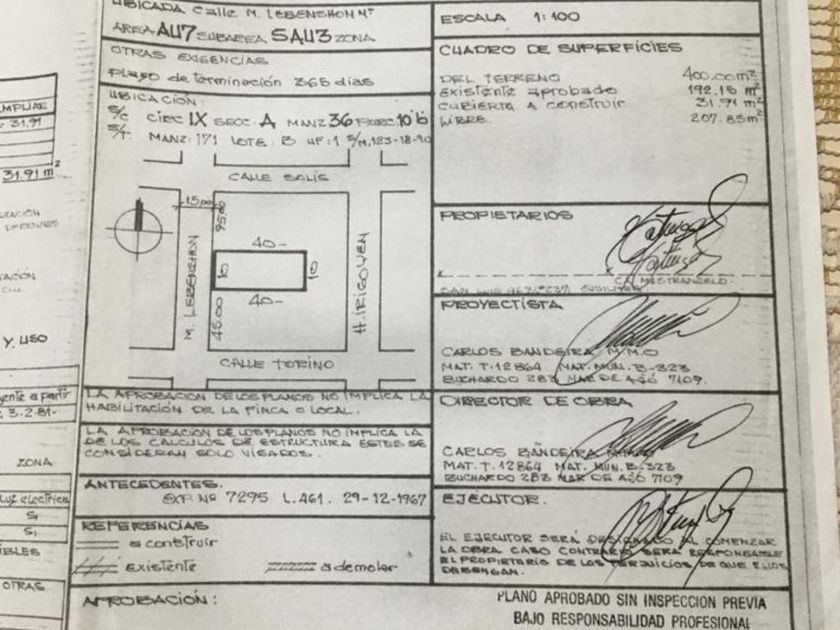 UBICADA CALLE M. LEBENSHON Nº
AREA AU7 SUBAREA SAU3 ZONA
OTRAS EXIGENCIAS
Plazo de terminación 365 dias
UBICACIÓN:
S/C CIRC IX SECC. A MANZ 36 PARC 10 b
S/T. MANZ: 171 LOTE: B UF: 1 S/M, 123-18-90
CALLE SOLÍS
15.00
95.00
40-
10
10
40-
45.00
M. LEBENSHON
H. IRIGOYEN
CALLE TORINO
LA APROBACION DE LOS PLANOS NO IMPLICA LA
HABILITACIÓN DE LA FINCA O LOCAL.
LA APROBACION DE LOS PLANOS NO IMPLICA LA
DE LOS CALCULOS DE ESTRUCTURA ESTOS SE
CONSIDERAN SOLO VISADOS.
ANTECEDENTES.
EXP. Nº 7295 L.461. 29-12-1967
REFERENCIAS
a construir
existente
a demoler
APROBACIÓN:
ESCALA 1:100
CUADRO DE SUPERFICIES
DEL TERRENO 400.00 m²
existente aprobado 192.15 m²
CUBIERTA A CONSTRUIR 31.91 m²
LIBRE. 207.85 m²
PROPIETARIOS
MASTRANGELO
SAN LUIS
PROYECTISTA
CARLOS BANDEIRA M.M.O
MAT. T. 12864 MAT. MUN. B-323
BUCHARDO 283 MAR DE AJÓ 7109.
DIRECTOR DE OBRA
CARLOS BANDEIRA
MAT. T. 12864 MAT. MUN. B-323
BUCHARDO 283 MAR DE AJÓ 7109
EJECUTOR.
EL EJECUTOR SERÁ DESIGNADO AL COMENZAR
LA OBRA CASO CONTRARIO SERA RESPONSABLE
EL PROPIETARIO DE LOS PERJUICIOS DE QUE ELLOS
DEBENGAN.
PLANO APROBADO SIN INSPECCION PREVIA
BAJO RESPONSABILIDAD PROFESIONAL
AMPLIAR
31.91
31.91 m²
Y USO
a partir
3-2-81-
ZONA
Luz electrica
SI
SI
OTRAS